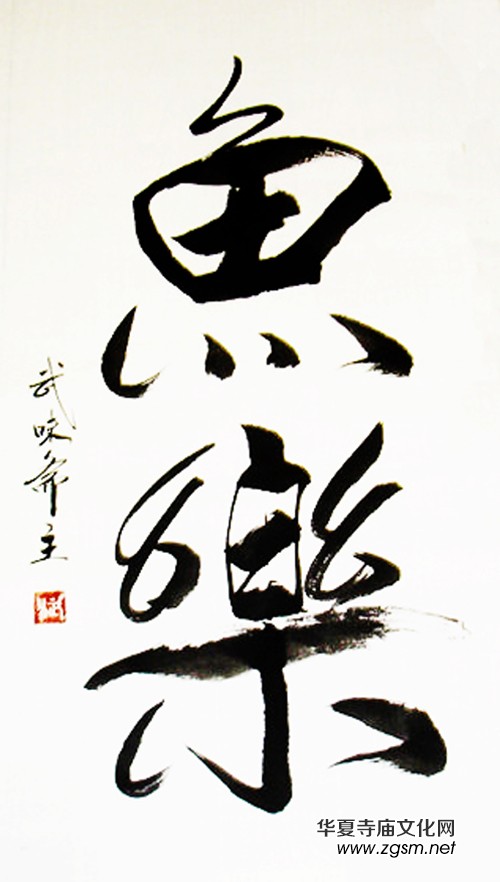 魚樂
武味斋主
华夏寺庙文化网
www.zgsm.net